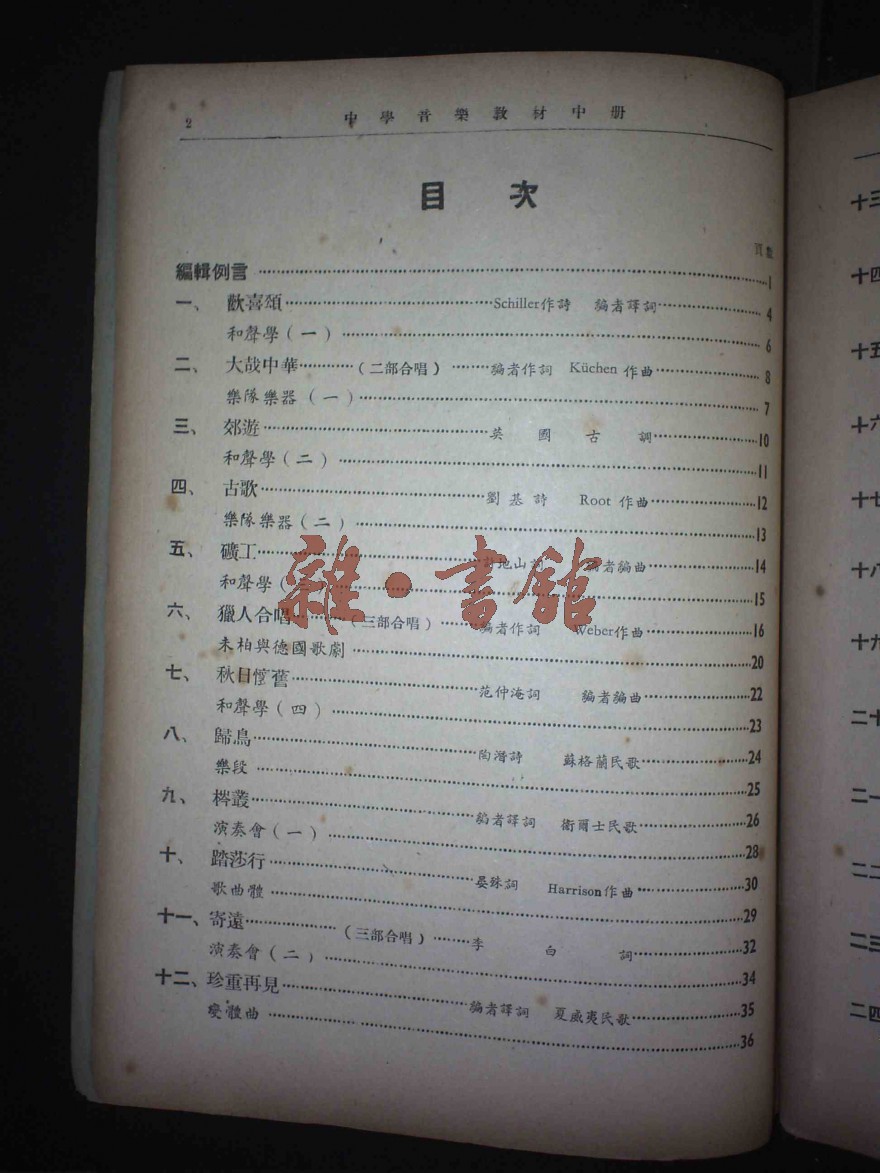 2 中學音樂教材中册
目次
頁數
編輯例言 1
一、 歡喜頌 Schiller作詩 編者譯詞 4
和聲學(一) 6
二、 大哉中華 (二部合唱) 編者作詞 Küchen 作曲 8
樂隊樂器(一) 7
三、 郊遊 英國古調 10
和聲學(二) 11
四、 古歌 劉基詩 Root 作曲 12
樂隊樂器(二) 13
五、 礦工 地山詞 編者編曲 14
和聲學( 15
六、 獵人合唱 (三部合唱) 編者作詞 Weber作曲 16
韦柏與德國歌劇 20
七、 秋日懷舊 范仲淹詞 編者編曲 22
和聲學(四) 23
八、 歸鳥 陶潛詩 蘇格蘭民歌 24
樂段 25
九、 梣叢 編者譯詞 衛爾士民歌 26
演奏會(一) 28
十、 踏莎行 晏殊詞 Harrison作曲 30
歌曲體 29
十一、寄遠 (三部合唱) 李白詞 32
演奏會(二) 34
十二、珍重再見 編者譯詞 夏威夷民歌 35
變體曲 36
雜·書館
十三
十四
十五
十六
十七
十八
十九
二十
二一
二二
二三
二四